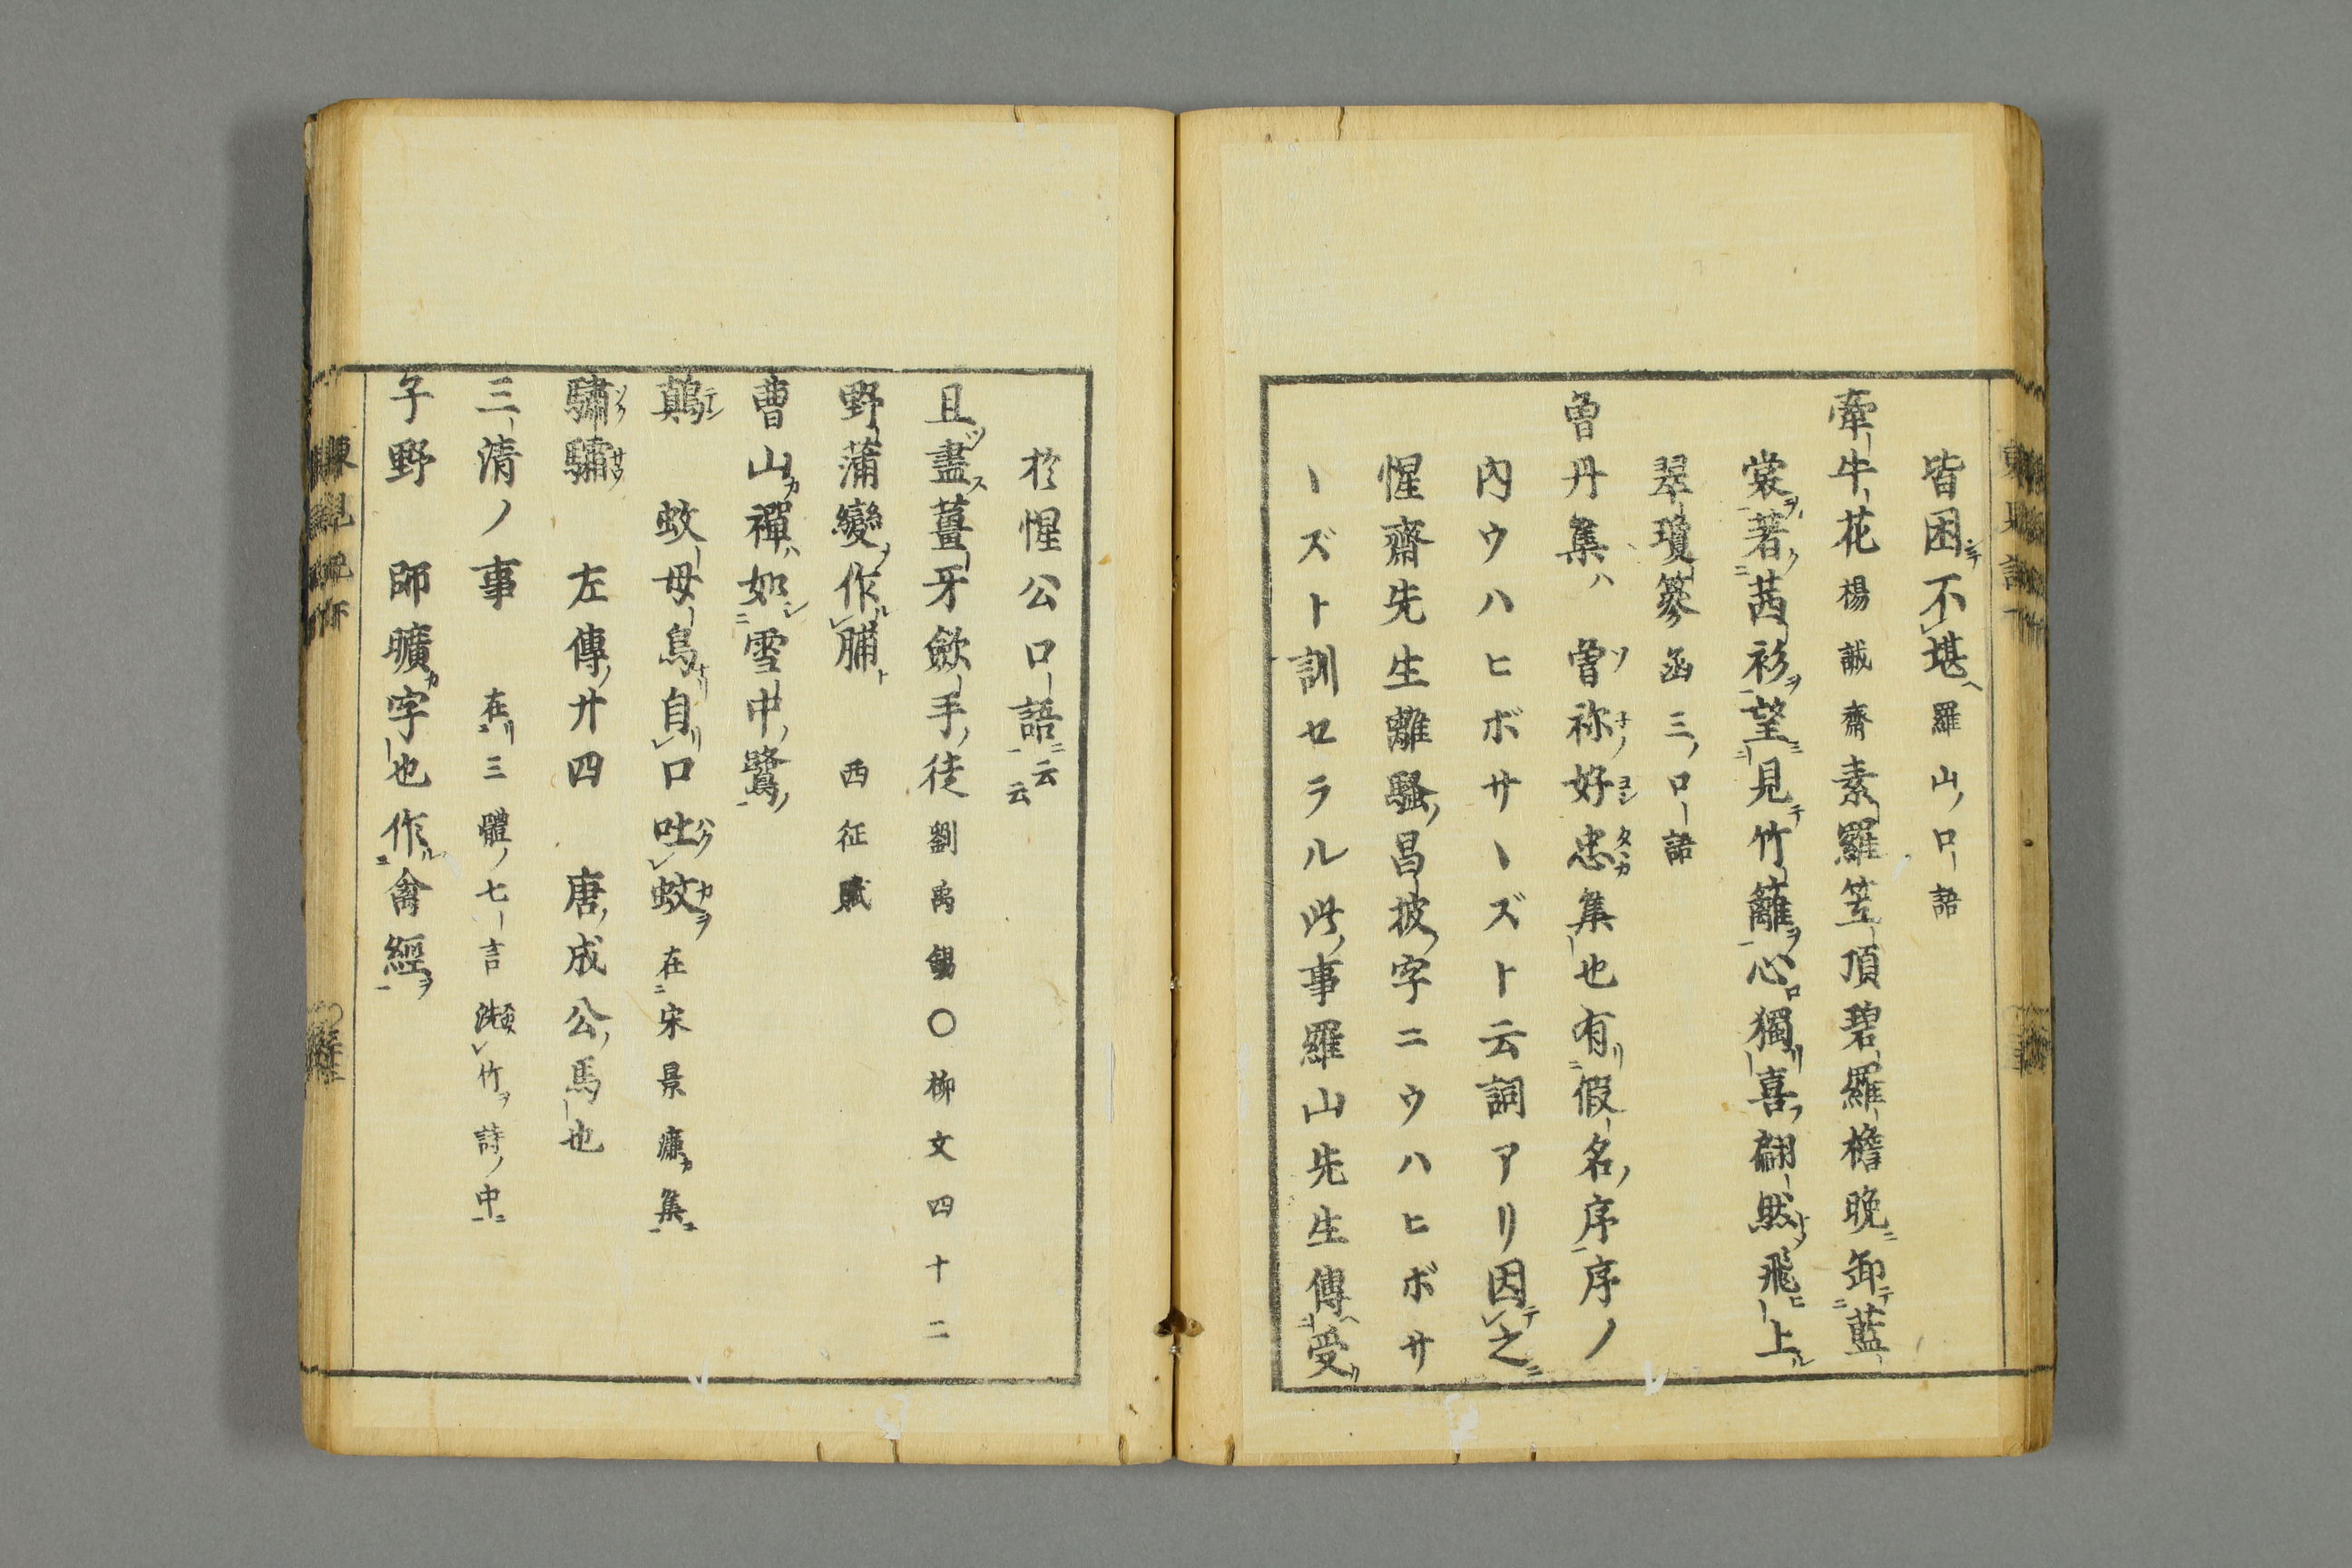 皆困不堪羅山ノ口語
牽牛花楊誠齋素羅笠頂碧羅檐晚卸藍
裳著茜衫望見竹籬心獨喜翩然飛上
翠瓊篸函三ノ口語
曽丹集ハ曽祢好忠集也有假名ノ序序ノ
內ウハヒボサヽズト云詞アリ因之
惺齋先生離騷ノ昌披ノ字ニウハヒボサ
ヽズト訓セラル此ノ事羅山先生傳受
於惺公口語云云
且盡薑牙歛手徒劉禹錫○柳文四十二
野蒲變作脯西征賦
曹山禪如雪中鷺
鷏蚊母鳥自口吐蚊在宋景濂集
驌驦左傳廿四唐成公馬也
三清ノ事在三體ノ七言洗竹ヲ詩ノ中
子野師曠字也作禽經